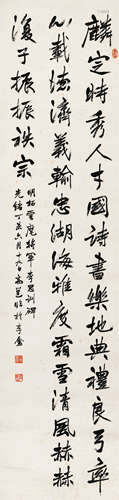 麟定時秀人才國詩書樂地典禮良弓率
心載德濟義輸忠湖海雅度霜雪清風赫赫
復子振振宗
明拓雲麾將軍李思訓碑
光緒丁亥六月十日高邕臨於李盦